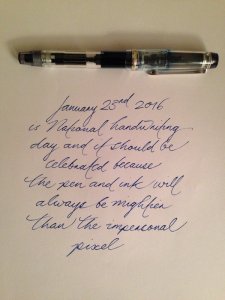 January 23rd 2016
is National handwriting
day and it should be
celebrated because
the pen and ink will
always be mightier
than the impersonal
pixel